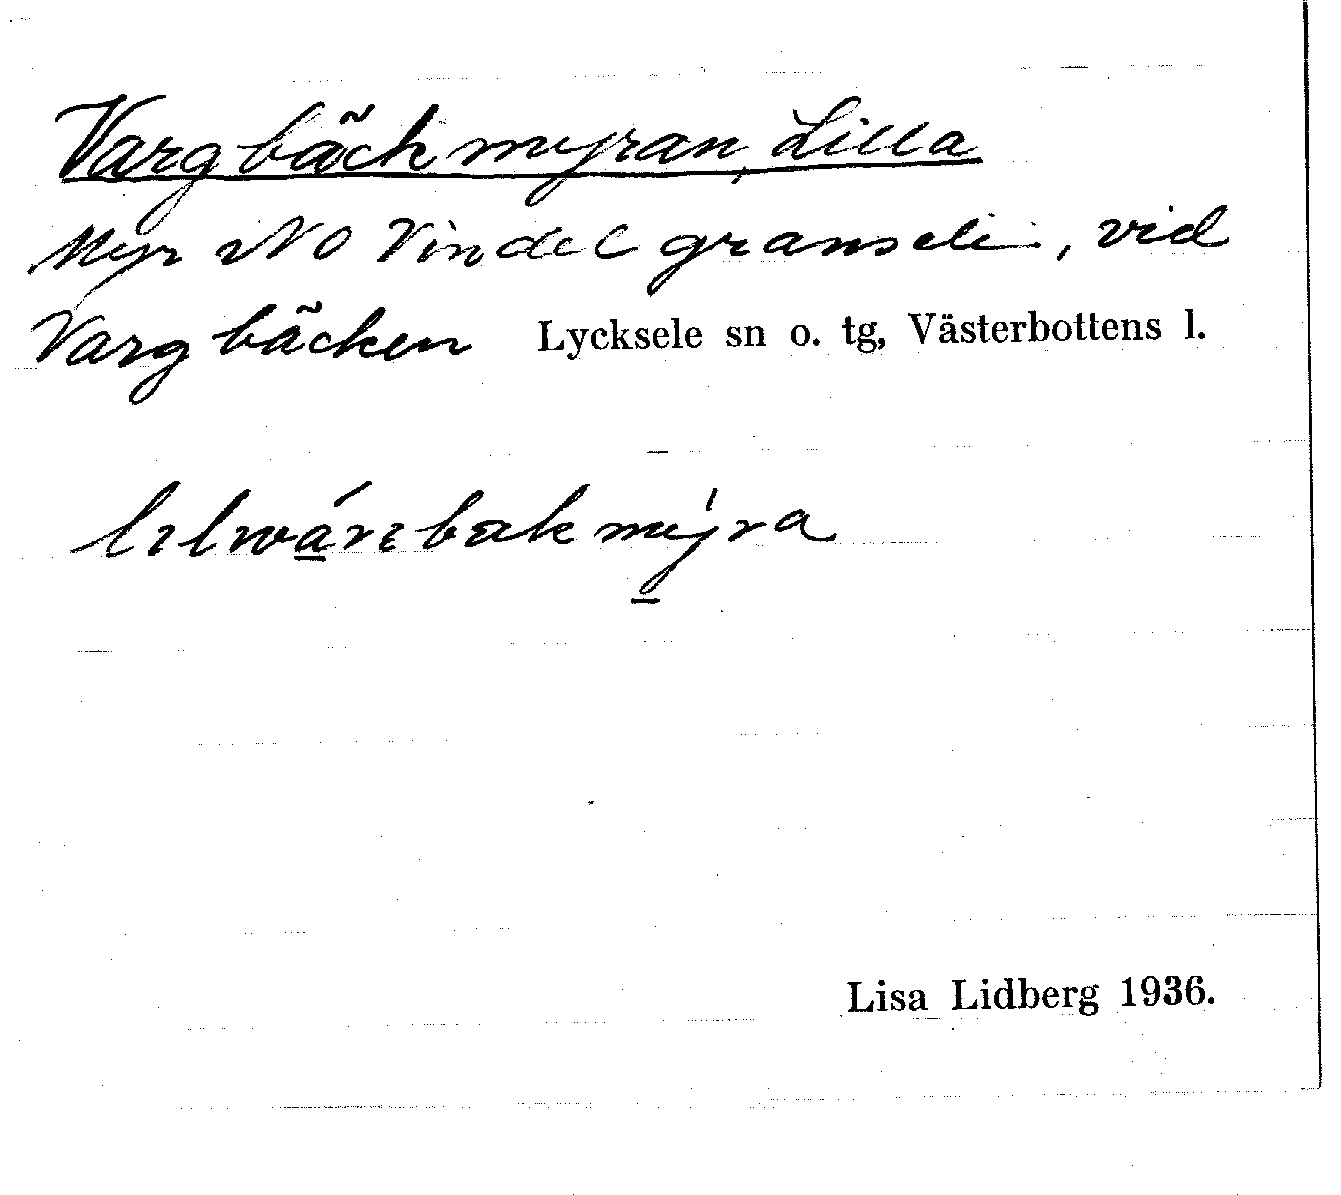 Vargbäckmyran, Lilla
Myr i NO Vindelgransele, vid
Vargbäcken Lycksele sn o. tg, Västerbottens l.
Lisa Lidberg 1936.